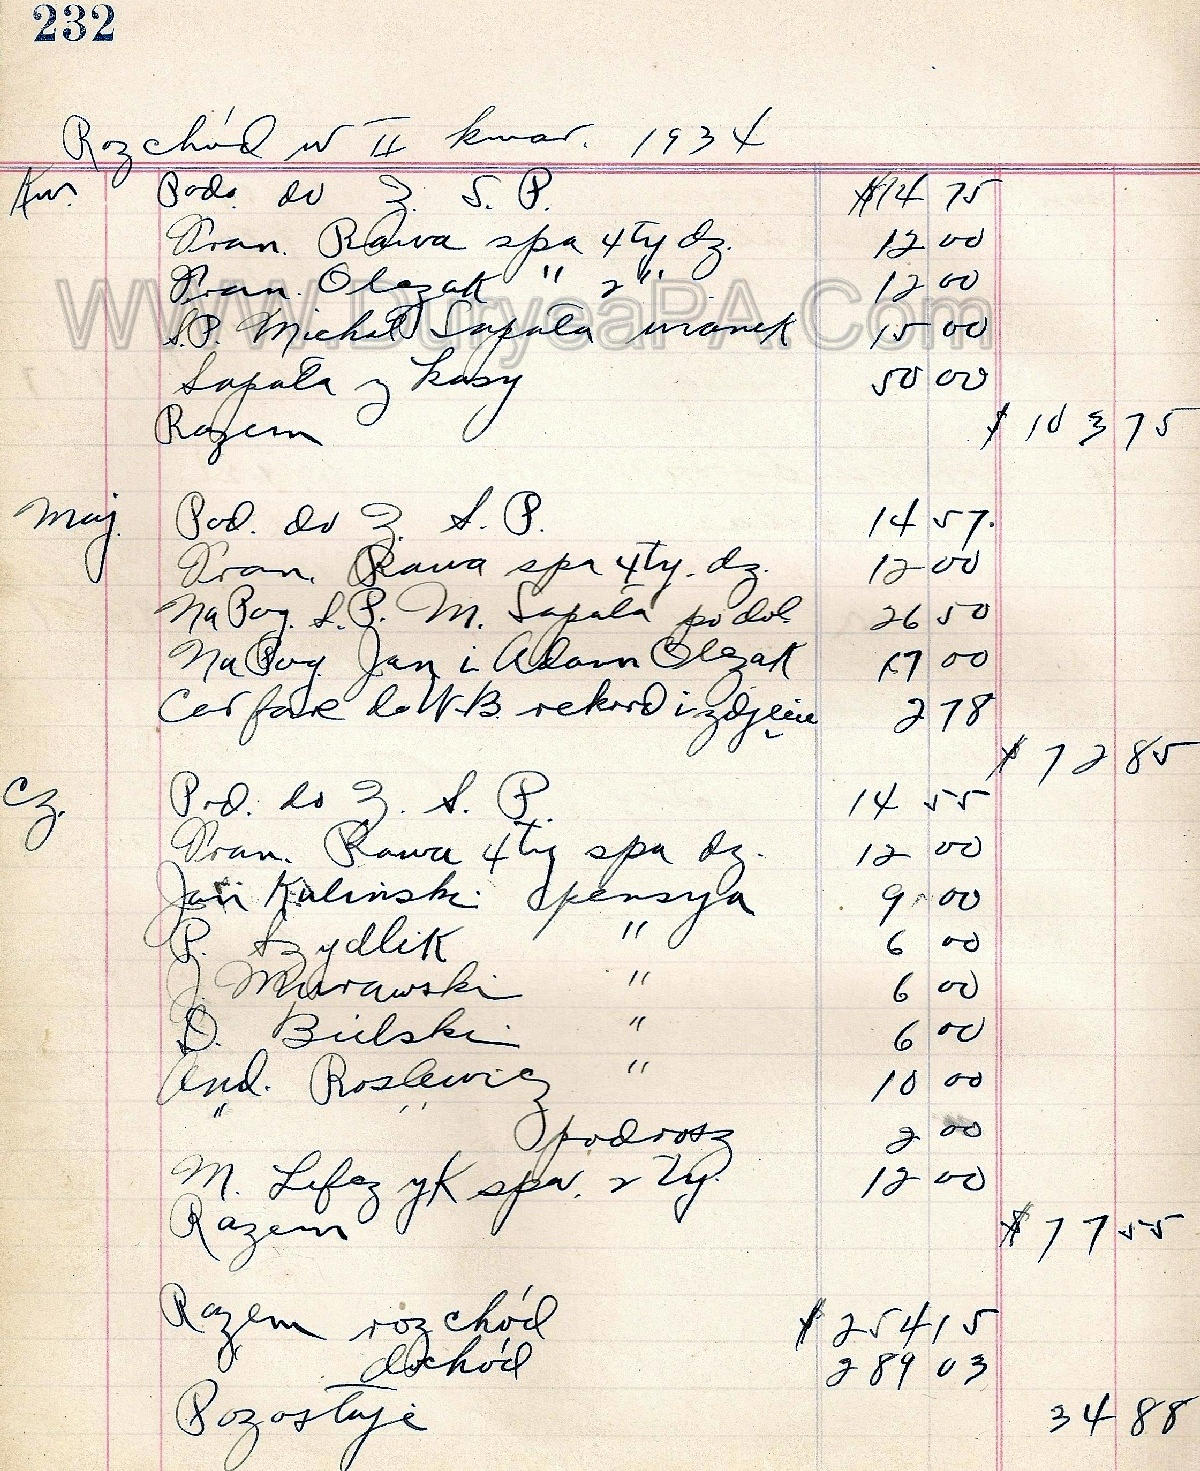 232
Rozchód w II kwar. 1934
Kw. Pod. do Z. S. P. $14 75
Fran. Rawa spa 4ty dz. 12 00
Fran. Olezak " 2 " 12 00
S.P. Michał Sapała wianek 15 00
Sapała z kasy 50 00
Razem $ 103 75
Maj. Pod. do Z. S. P. 14 57.
Fran. Rawa spa 4ty. dz. 12 00
Na Pog. S.P. M. Sapała po dol. 26 50
Na Pog. Jan i Adam Olezak 17 00
Car fare do W.B. rekord i zdjęcie 2 78
$ 72 85
Cz. Pod. do Z. S. P. 14 55
Fran. Rawa 4ty spa dz. 12 00
Jan Kalinski pensya 9 00
P. Szydlik " 6 00
J. Murawski " 6 00
D. Bielski " 6 00
And. Roslewicz " 10 00
" " podrosz 2 00
M. Lefczyk spa. 2 ty. 12 00
Razem $ 77 55
Razem rozchód $ 254 15
dochód 289 03
Pozostaje 34 88
WWW.DuryeaPA.Com